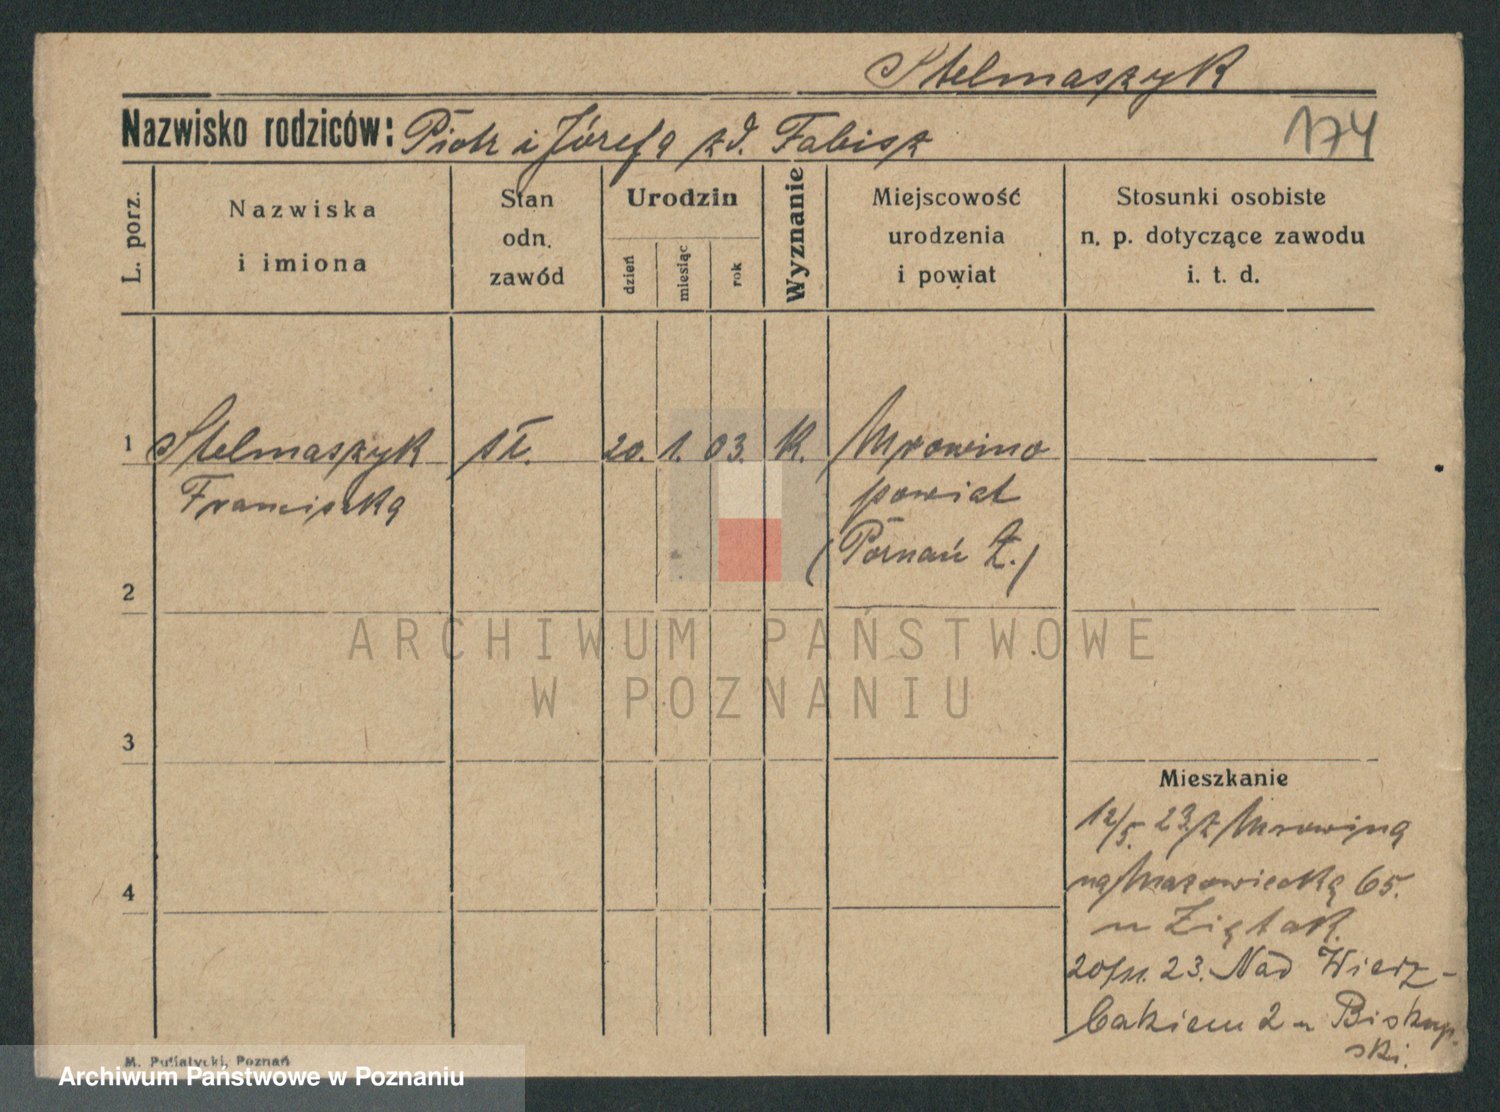 Stelmaszyk
Nazwisko rodziców: Piotr i Józefa zd. Fabisz
174
L. porz.
Nazwiska
i imiona
Stan
odn.
zawód
Urodzin
dzień
miesiąc
rok
Wyznanie
Miejscowość
urodzenia
i powiat
Stosunki osobiste
n. p. dotyczące zawodu
i. t. d.
1 Stelmaszyk sł. 20. 1. 03. K. Mrowino
Franciszka powiat
(Poznań Z.)
2
ARCHIWUM PAŃSTWOWE
W POZNANIU
3
Mieszkanie
12/5. 23 z Mrowina
4
na Mazowiecką 65.
u Ziętak.
23. Nad Wierz-
bakiem 2 u Biskup-
ski.
M. Putiatycki, Poznań
Archiwum Państwowe w Poznaniu